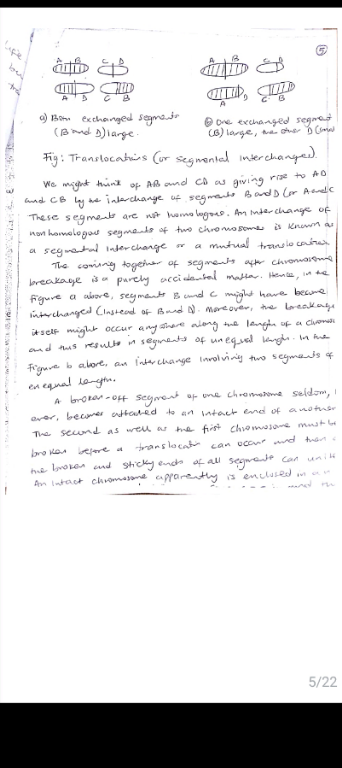 5
A B C D A B C D
A D C B A D C B
a) Both exchanged segments b) One exchanged segment
(B and D) large. (B) large, the other D (small
Fig: Translocations (or segmental interchanges).
We might think of AB and CD as giving rise to AD
and CB by the interchange of segments B and D (or A and C
These segments are not homologous. An Interchange of
non homologous segments of two chromosomes is known as
a segmental interchange or a mutual translocation.
The coming together of segments after chromosome
breakage is a purely accidental matter. Hence, in the
figure a above, segments B and C might have become
interchanged (instead of B and D). Moreover, the breakage
itself might occur anywhere along the length of a chromos
and thus results in segments of unequal length. In the
figure b above, an interchange involving two segments of
unequal length.
A broken-off segment of one chromosome seldom, 
ever, becomes attached to an intact end of another
The second as well as the first chromosome must be
broken before a translocati can occur and then
the broken and sticky ends of all segments can unit
An intact chromosome apparently is enclosed in a
5/22